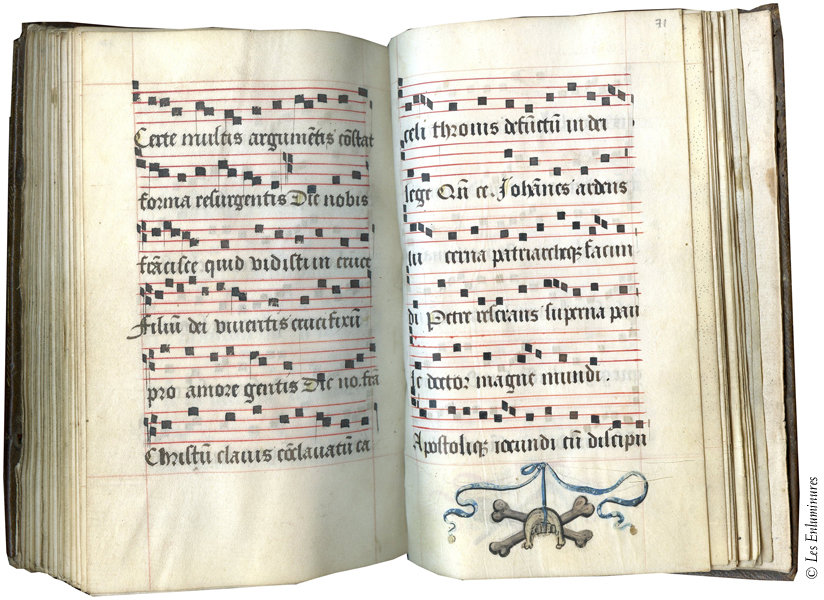 Certe multis argumētis cōstat
forma resurgentis Dic nobis
frācisce quid vidisti in cruce
Filiū dei viventis crucifixū
pro amore gentis Dic no. frā
Christū clavis cōclavatū ca
71
celi thronis defūctū in dei
lege Qm̄ ce. Johānes ardens
lu cerna patriarcheq; facun
di Petre reserans superna pau
le doctor magne mundi.
Apostoliq; iocundi cū discipu
© Les Enluminures